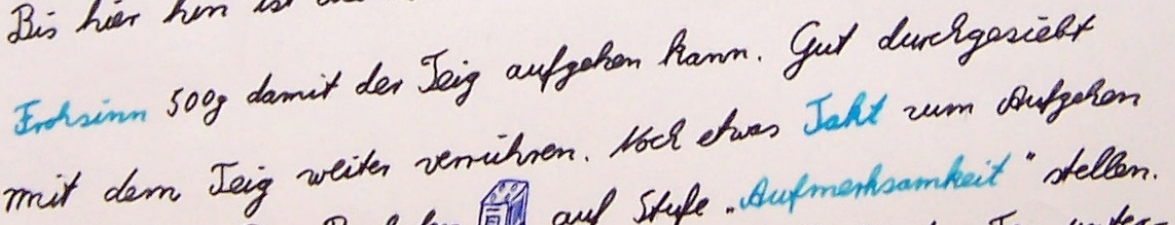 Bis hier hin ist
Frohsinn 500g damit der Teig aufgehen kann. Gut durchgesiebt
mit dem Teig weiter verrühren. Noch etwas Takt zum Aufgehen
auf Stufe „Aufmerksamkeit" stellen.